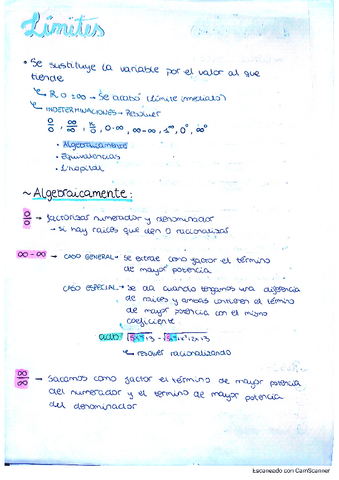 Límites
• Se sustituye la variable por el valor al que
tiende
↳ R o ±∞ → Se acabó (límite inmediato)
↳ INDETERMINACIONES → Resolver
0/0, ∞/∞, k/0, 0·∞, ∞-∞, 1^∞, 0^0, ∞^0
• Algebraicamente
• Equivalencias
• L'hôpital
~ Algebraicamente:
0/0 → factorizar numerador y denominador
→ si hay raíces que den 0 racionalizar
∞-∞ → CASO GENERAL → Se extrae como factor el término
de mayor potencia
CASO ESPECIAL → se da cuando tengamos una diferencia
de raíces y ambas contienen el término
de mayor potencia con el mismo
coeficiente
↳ resolver racionalizando
∞/∞ → Sacamos como factor el término de mayor potencia
del numerador y el término de mayor potencia
del denominador
Escaneado con CamScanner